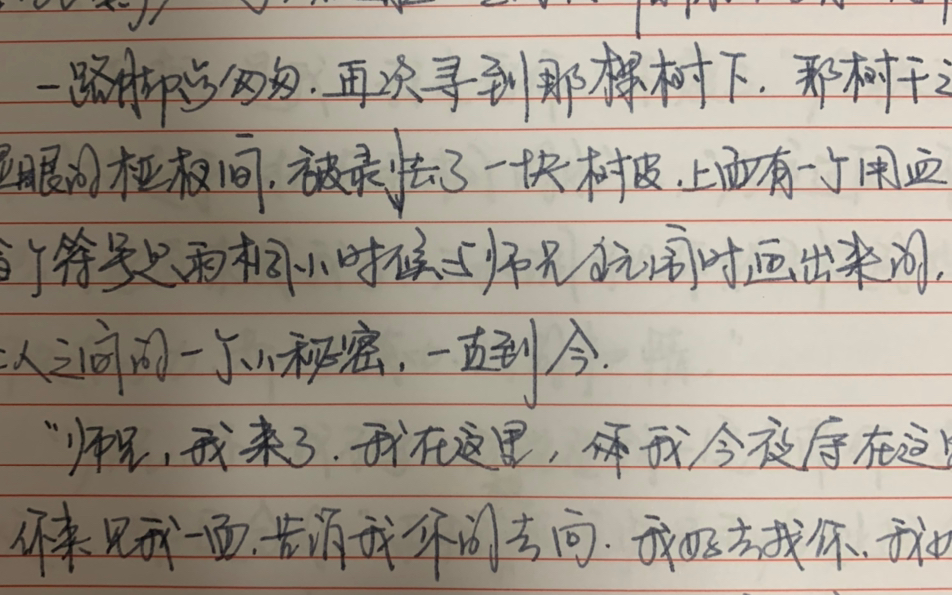 一路脚步匆匆.再次寻到那棵树下.那树干
显眼的桠杈间.被录去了一块树皮.上面有一个用血
个符号是雨相小时候与师兄玩闹时画出来的,
人之间的一个小秘密,一直到今.
"师兄,我来了.我在这里,我今夜在这
你来见我一面.告消我你的去向.我好去找你.我